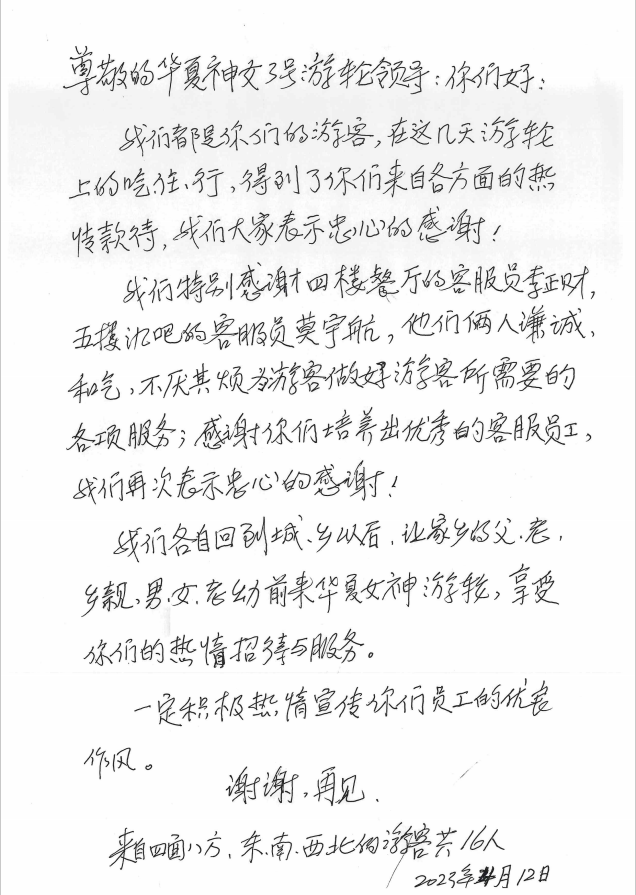 尊敬的华夏神女3号游轮领导:你们好:
我们都是你们的游客,在这几天游轮
上的吃、住、行,得到了你们来自各方面的热
情款待,我们大家表示忠心的感谢!
我们特别感谢四楼餐厅的客服员李正财,
五楼氿吧的客服员莫宇航,他们俩人谦诚、
和气、不厌其烦为游客做好游客所需要的
各项服务;感谢你们培养出优秀的客服员工,
我们再次表示忠心的感谢!
我们各自回到城、乡以后,让家乡的父、老、
乡亲、男、女、老幼前来华夏女神游轮,享受
你们的热情招待与服务。
一定积极热情宣传你们员工的优良
作风。
谢谢,再见.
来自四面八方、东、南、西北的游客共16人
2023年4月12日